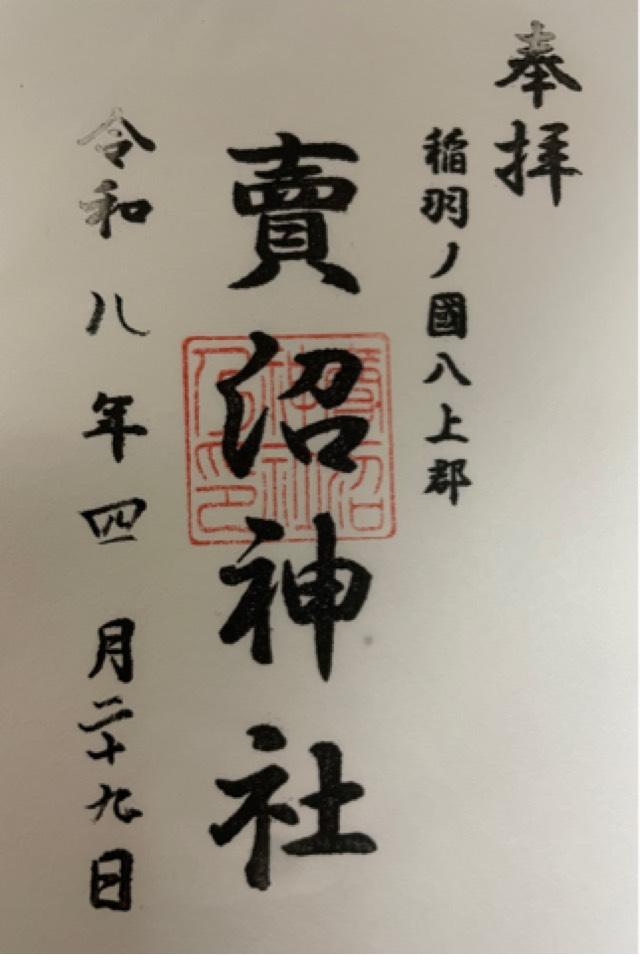 奉拝
稲羽ノ國八上郡
賣沼神社
賣沼
神社
乃印
令和八年四月二十九日